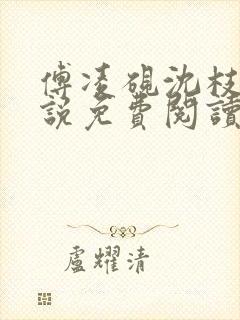 傅凌硯沈枝
說免費閱讀
盧耀清